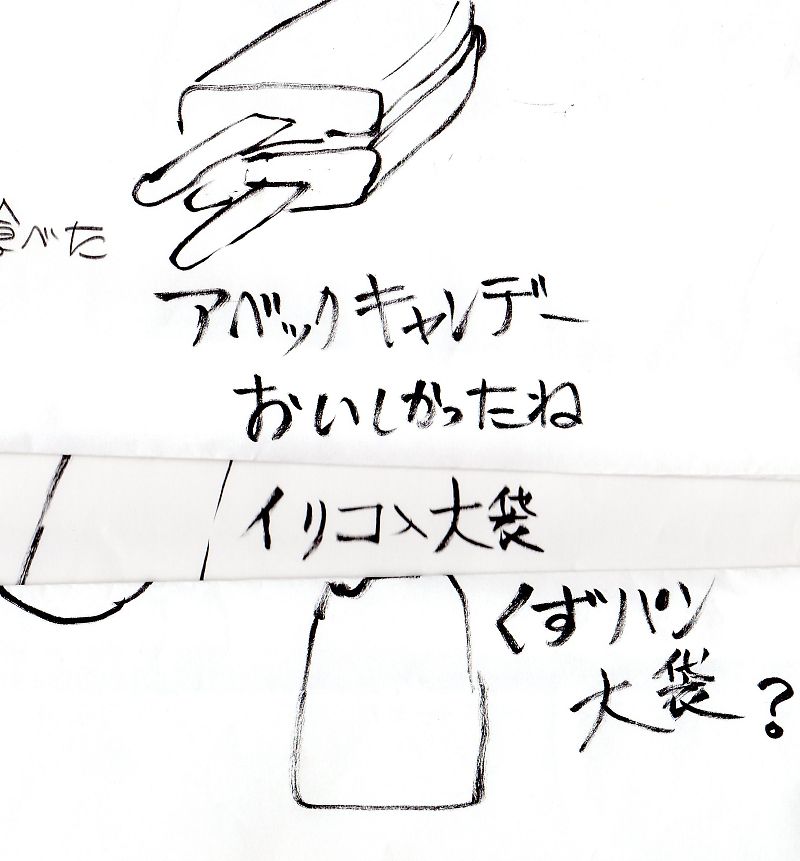 食べた
アベックキャンデー
おいしかったね
イリコ、大袋
くずパン
大袋?